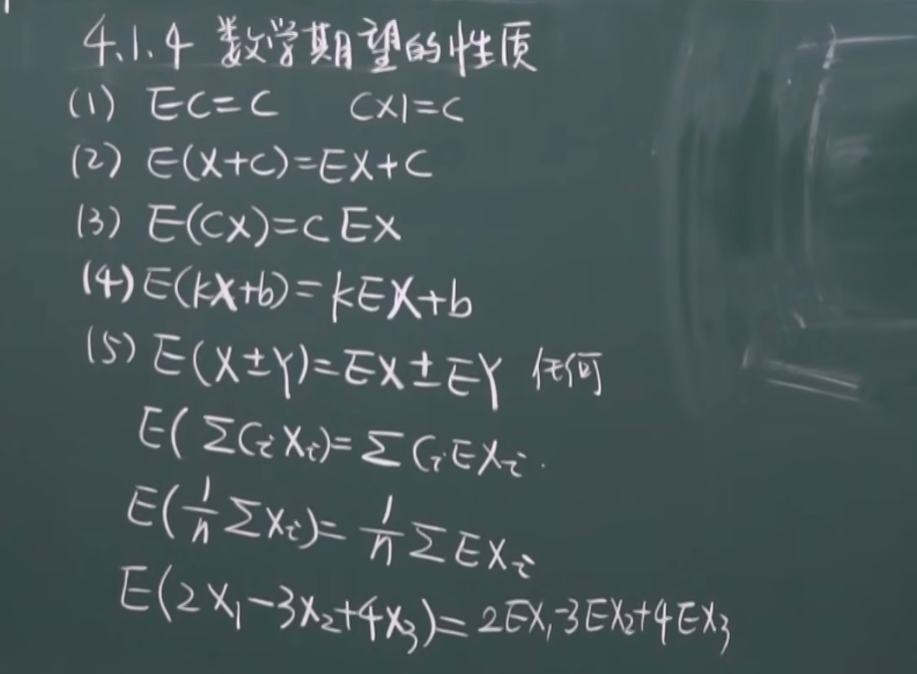 4.1.4 数学期望的性质
(1) EC=C C×1=C
(2) E(X+C)=EX+C
(3) E(CX)=CEX
(4) E(kX+b)=kEX+b
(5) E(X±Y)=EX±EY 任何
E(∑CᵢXᵢ)=∑CᵢEXᵢ.
E(1/n ∑Xᵢ)=1/n ∑EXᵢ
E(2X₁-3X₂+4X₃)=2EX₁-3EX₂+4EX₃